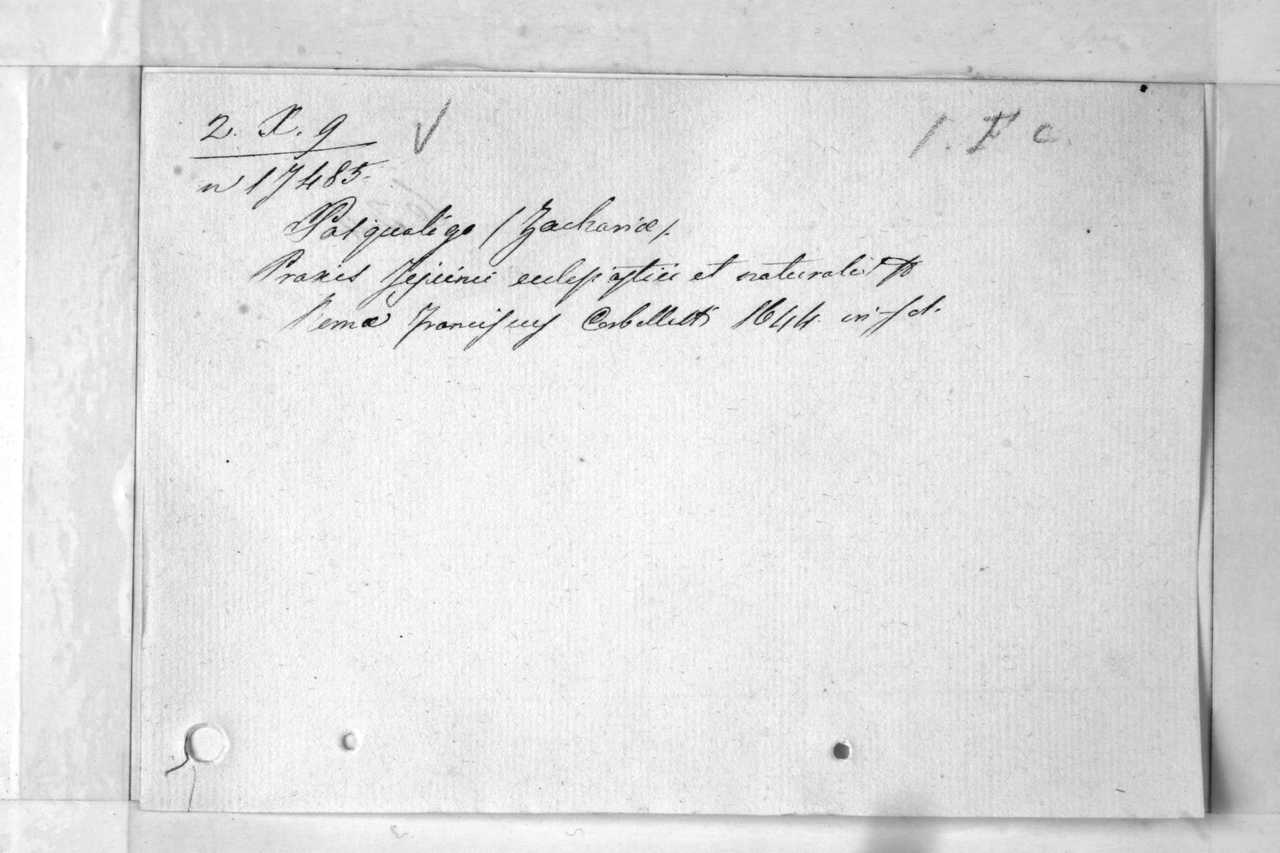 2. X. 9
n 17485
1. F c.
Pasqualigo (Zachariæ).
Praxis Jejunii ecclesiastici et naturalis
Romæ Franciscus Corbelletti 1644 in-fol.